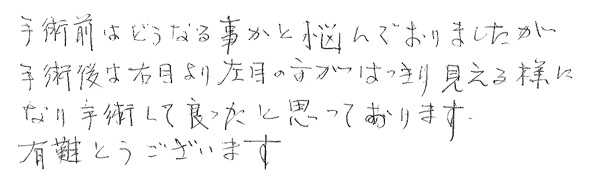 手術前はどうなる事かと悩んでおりましたが
手術後は右目より左目の方がはっきり見える様に
なり手術して良ったと思っております.
有難とうございます